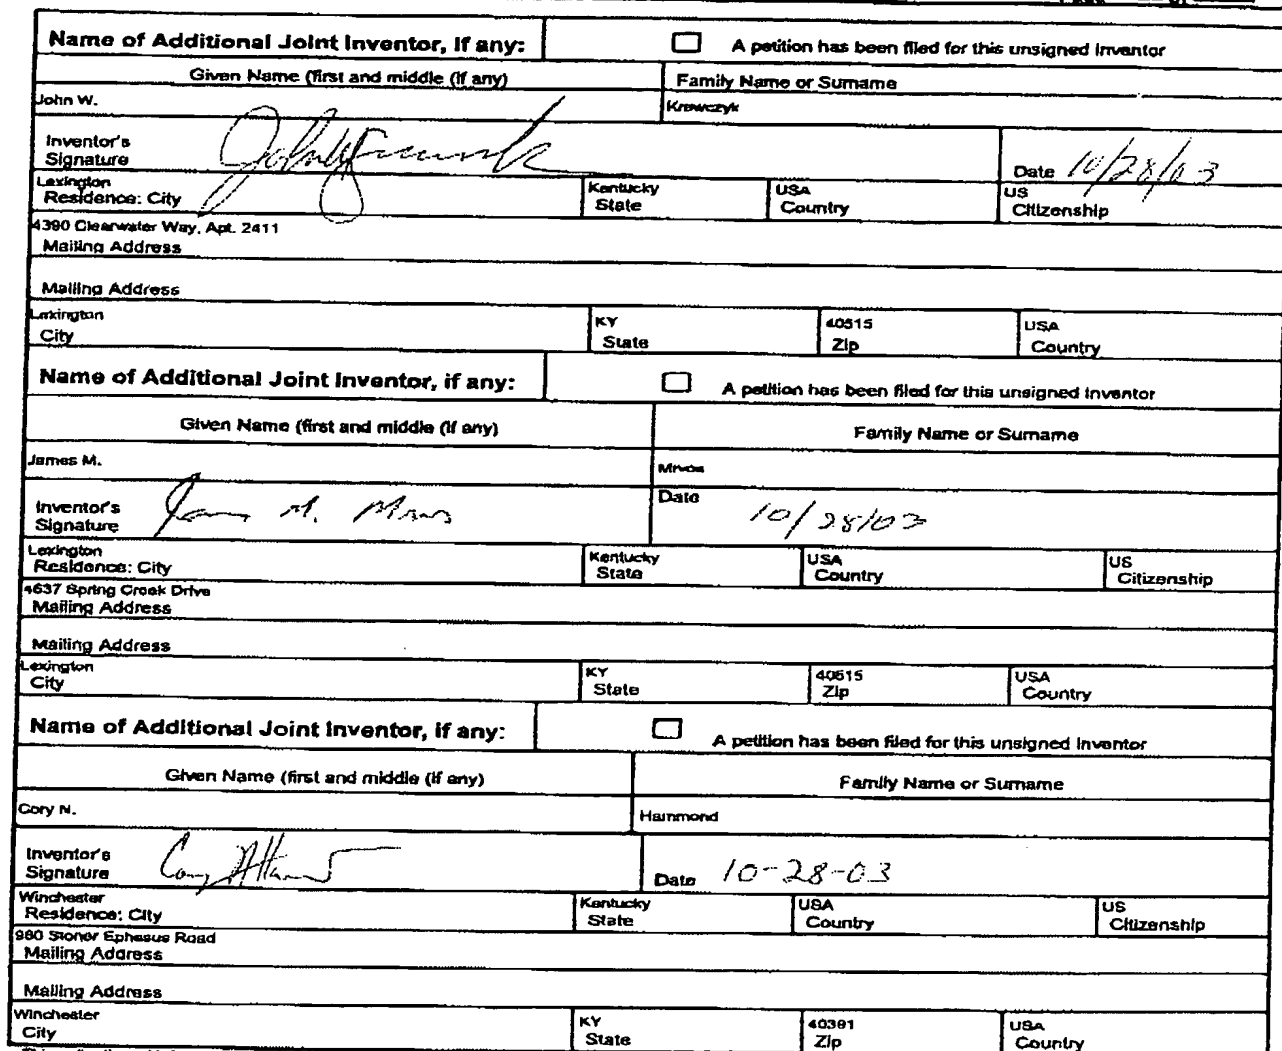 Name of Additional Joint Inventor, if any: A petition has been filed for this unsigned inventor
Given Name (first and middle (if any) Family Name or Surname
John W. Krawczyk
Inventor's
Signature Date 10/28/03
Lexington Kentucky USA US
Residence: City State Country Citizenship
4390 Clearwater Way, Apt. 2411
Mailing Address
Mailing Address
Lexington KY 40515 USA
City State Zip Country
Name of Additional Joint Inventor, if any: A petition has been filed for this unsigned inventor
Given Name (first and middle (if any) Family Name or Surname
James M. Mrvos
Inventor's Date
Signature James M. Mrvos 10/28/03
Lexington Kentucky USA US
Residence: City State Country Citizenship
4637 Spring Creek Drive
Mailing Address
Mailing Address
Lexington KY 40515 USA
City State Zip Country
Name of Additional Joint Inventor, if any: A petition has been filed for this unsigned inventor
Given Name (first and middle (if any) Family Name or Surname
Cory N. Hammond
Inventor's
Signature Date 10-28-03
Winchester Kentucky USA US
Residence: City State Country Citizenship
980 Stoner Ephesus Road
Mailing Address
Mailing Address
Winchester KY 40391 USA
City State Zip Country